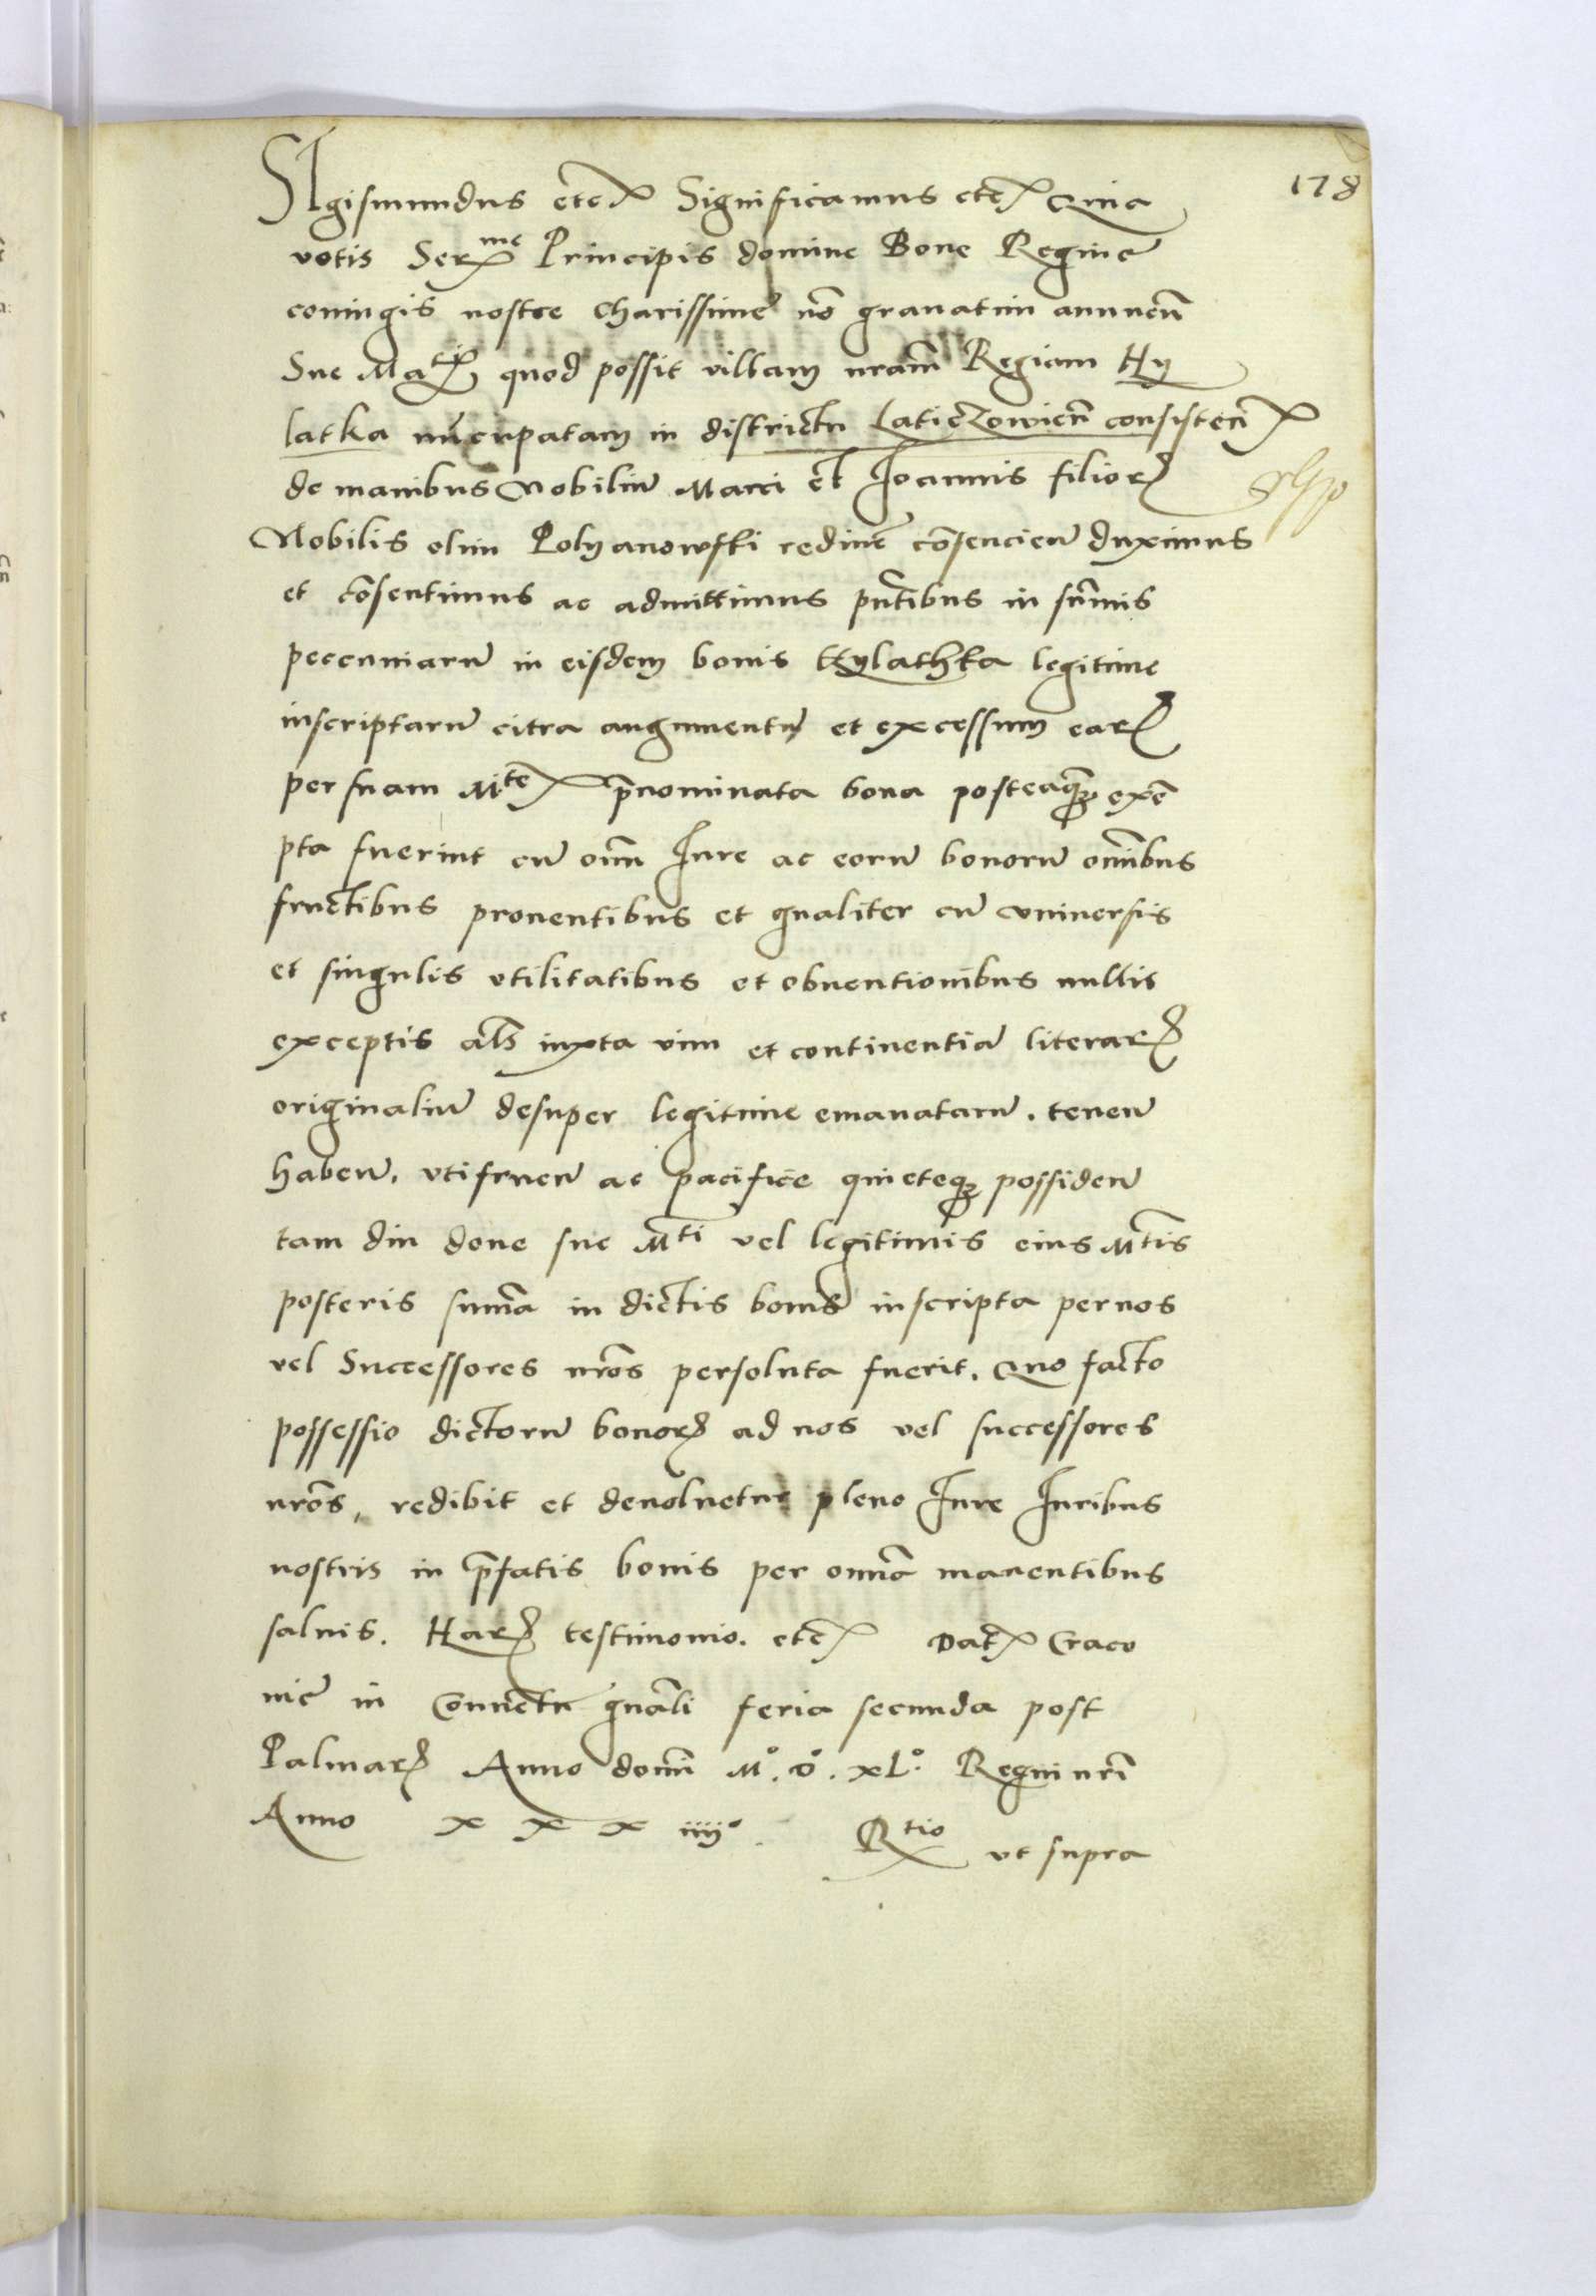 178
SIgismundus etc Significamus etc Quia
votis Ser me Principis domine Bone Regine
coniugis nostre charissime nō gravatim annuen̄
Sue Mati quod possit villam nram̄ Regiam Hy
latka nūcupatam in districtu Laticzowien̄ consisten̄
de manibus Nobiliū Marci et Ioannis filior
Nobilis olim Polyanowski redimē cōsenciēn duximus
et cōsentimus ac admittimus pn̄tibus in sūmis
peccuniarū in eisdem bonis Hylathka legitime
inscriptarū citra augumentū et excessum ear
per suam Mte p̄nominata bona posteaq̄ exē
pta fuerint cū omn̄ Iure ac eorū bonorū omībus
fructibus proventibus et gn̄aliter cū vniversis
et singulis vtilitatibus et obventionibus nullis
exceptis als̄ iuxta vim et continentiā literar
originaliū desuper legitime emanatarū. tenen̄
haben̄. vtifruen̄ ac pacifice quieteq̄ possiden̄
tam diu donec sue Mti vel legitimis eius Mtis
posteris sum̄a in dictis bonis inscripta per nos
vel Successores nrōs persoluta fuerit. Quo facto
possessio dictorū bonor ad nos vel successores
nrōs, redibit et devolvetur pleno Iure Iuribus
nostris in p̄fatis bonis per omn̄ia manentibus
salvis. Har testimonio. etc Dat Craco
vie in Conuentu gn̄ali feria secunda post
Palmar Anno domī Mº. Vº. xLº. Regni nrī
Anno x x x iiijº Rtio vt supra